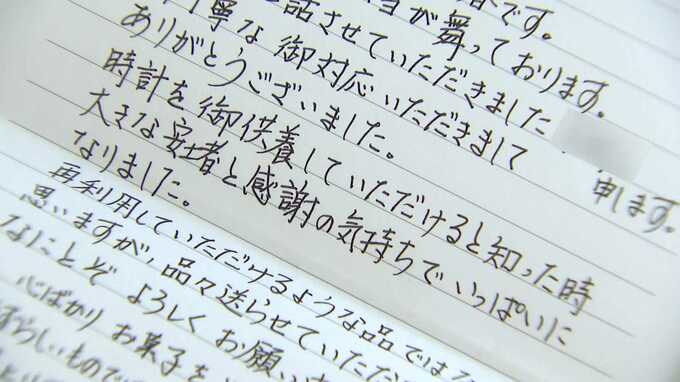 が舞っております。
話させていただきました
寧な御対応いただきまして 申します。
ありがとうございました。
時計を御供養していただけると知った時
大きな安堵と感謝の気持ちでいっぱいに
なりました。
再利用していただけるような品ではな
思いますが、品々送らせていただ
なにことぞ よろしくお願い
心ばかり お菓子を
らしいもので